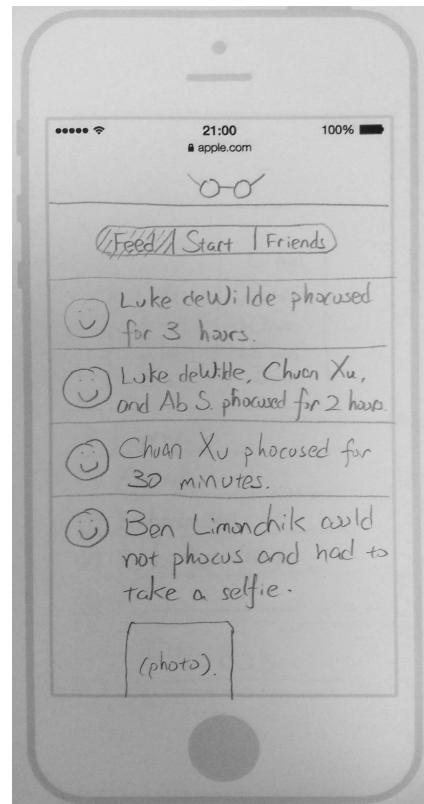 21:00
100%
apple.com
Feed Start Friends
Luke deWilde phocused
for 3 hours.
Luke deWilde, Chuan Xu,
and Ab S. phocused for 2 hours.
Chuan Xu phocused for
30 minutes.
Ben Limonchik could
not phocus and had to
take a selfie.
(photo).